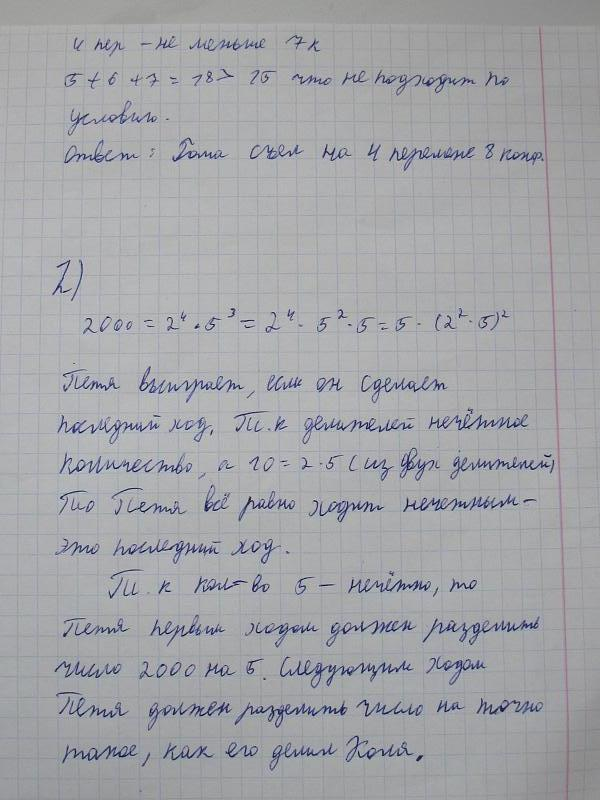 4 пер - не меньше 7 к
5 + 6 + 7 = 18 > 15 что не подходит по
условию.
Ответ: Тома съел на 4 перемене 8 конф.
2)
2000 = 2⁴ · 5³ = 2⁴ · 5² · 5 = 5 · (2² · 5)²
Петя выиграет, если он сделает
последний ход. Т.к делителей нечётное
количество, а 10 = 2 · 5 (из двух делителей)
То Петя всё равно ходит нечетным -
это последний ход.
Т.к кол-во 5 - нечётно, то
Петя первым ходом должен разделить
число 2000 на 5. Следующим ходом
Петя должен разделить число на точно
такое, как его делил Коля.